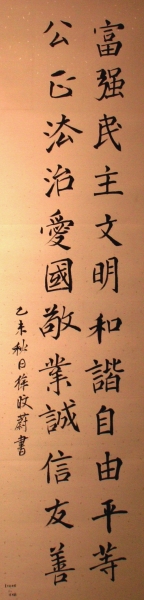 富强民主文明和諧自由平等
公正法治愛國敬業誠信友善
己未秋日徐政蔚書